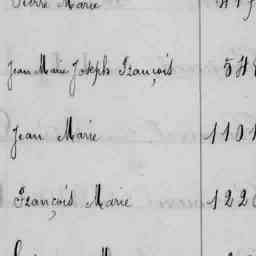 Pierre Marie
Jean Marie Joseph François 54
Jean Marie 1101
François Marie 122